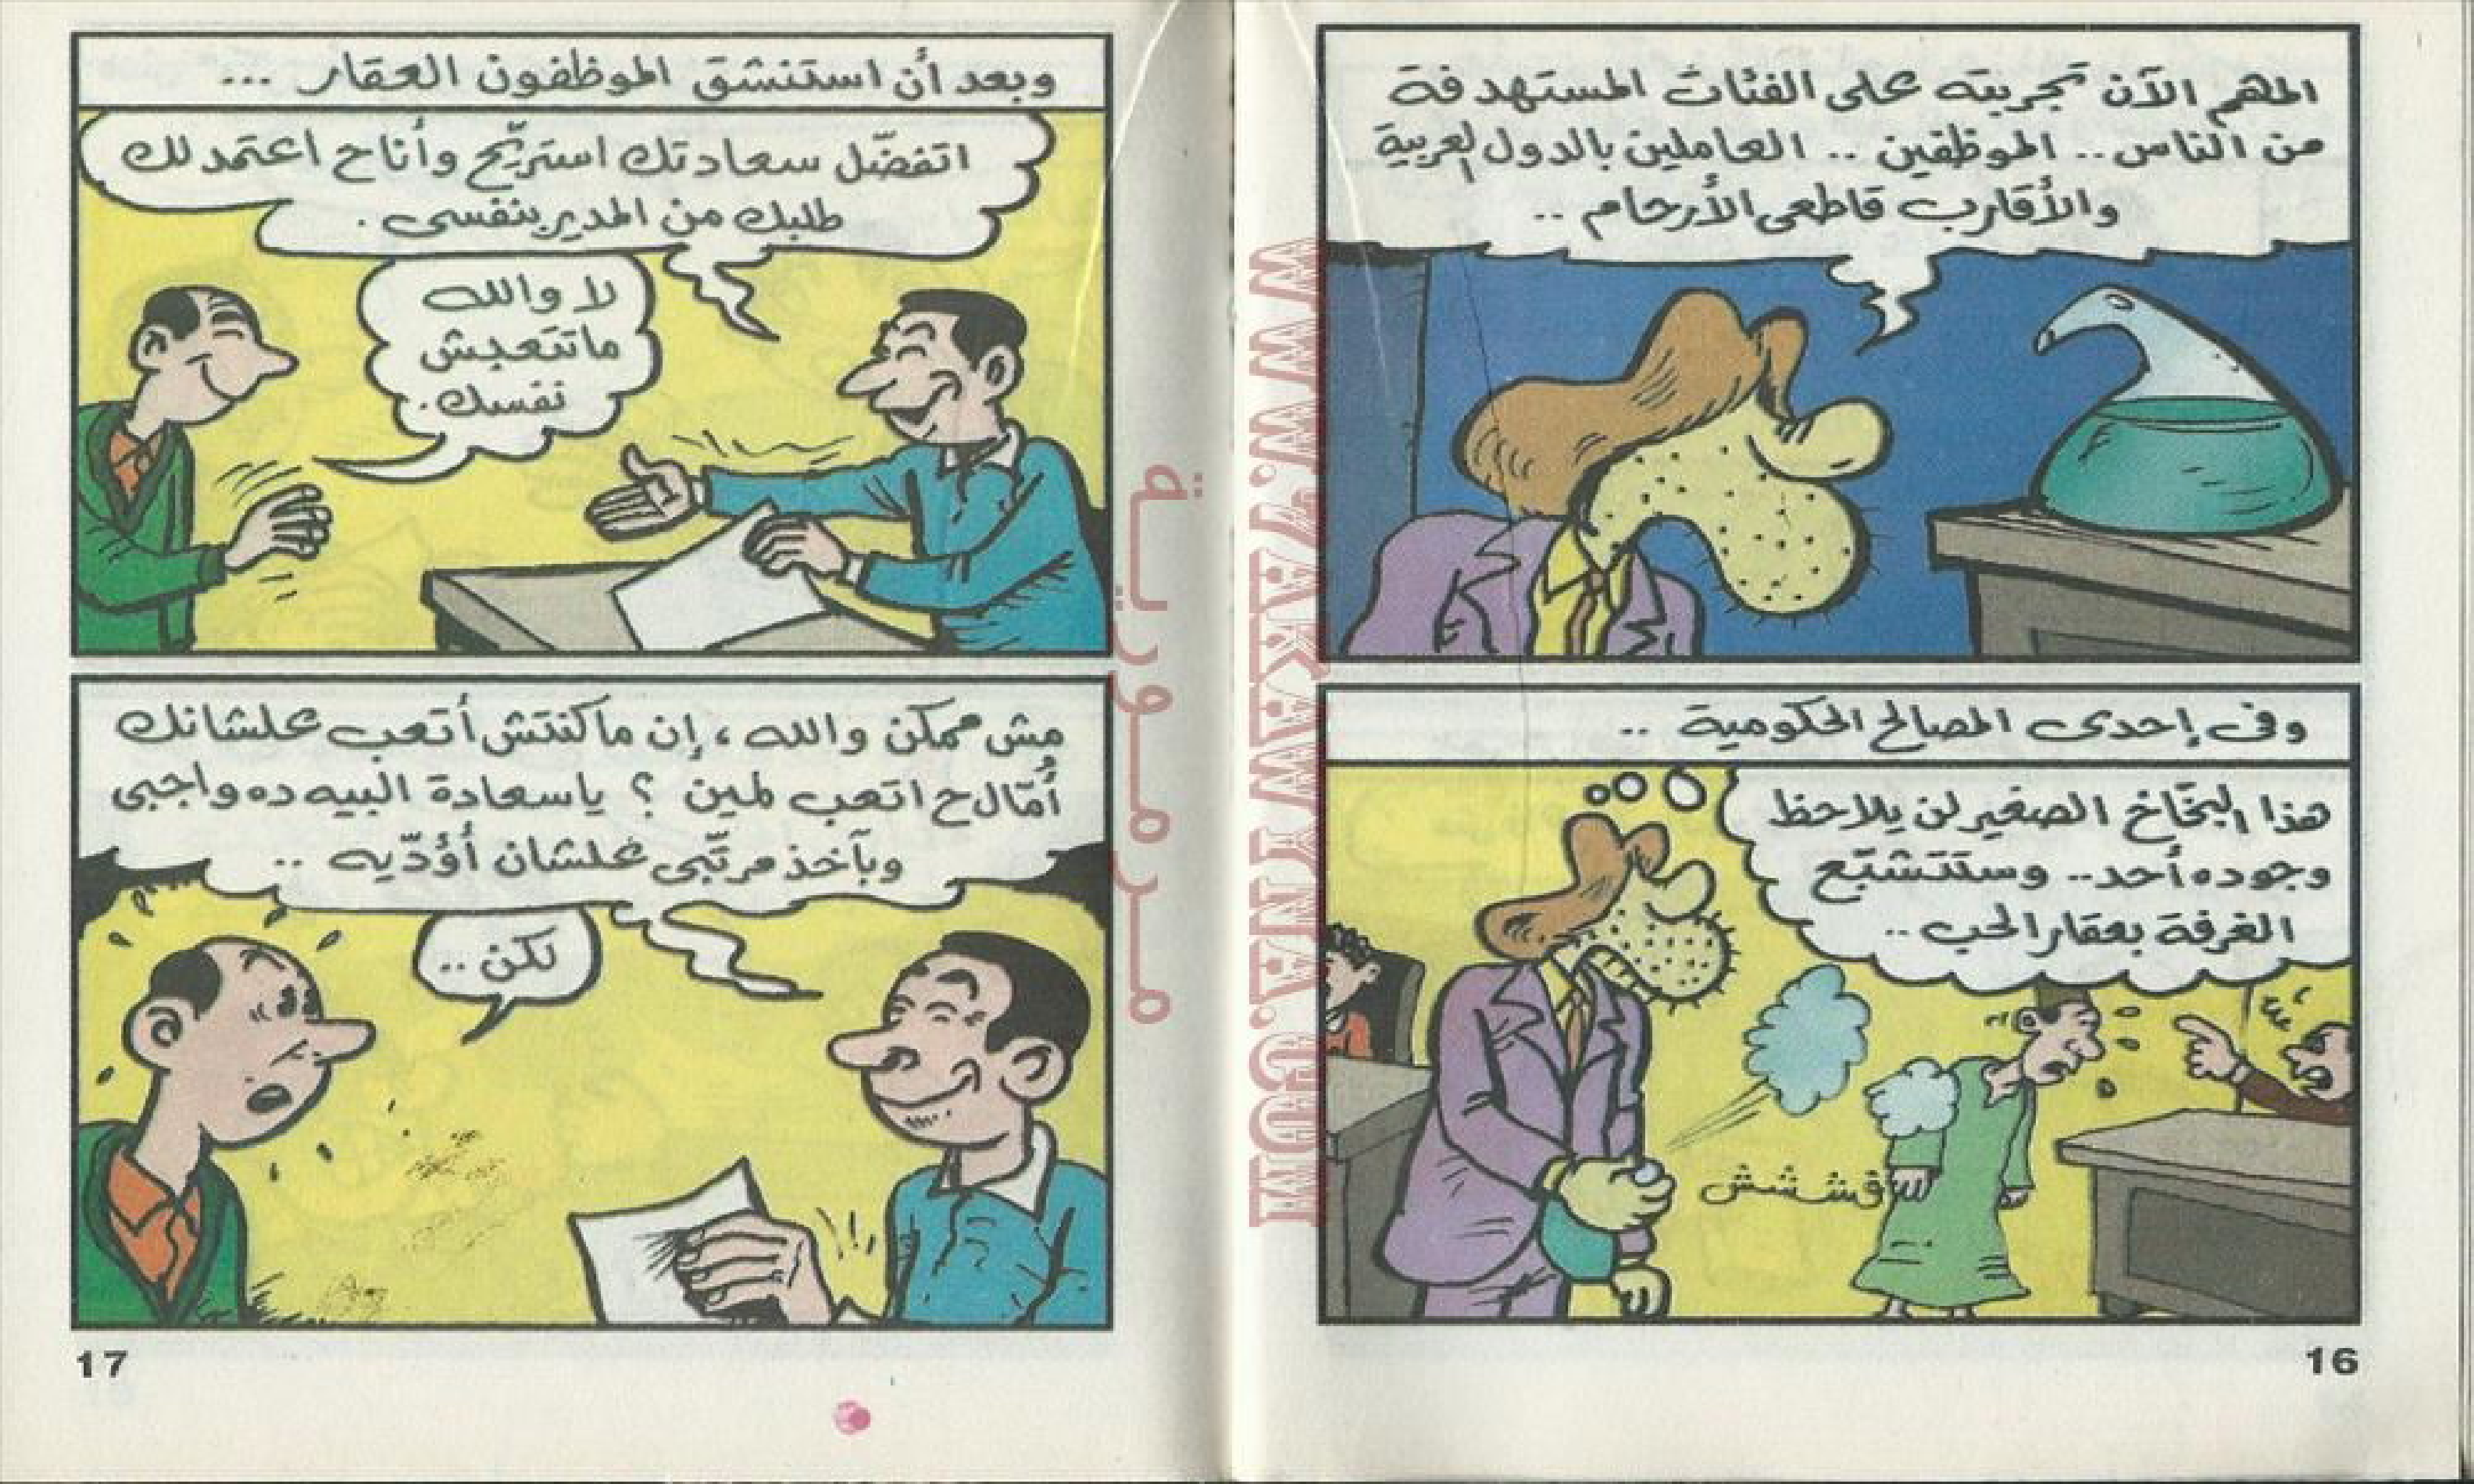 المهم الآن تجربته على الفئات المستهدفة
من الناس.. الموظفين .. العاملين بالدول العربية
والأقارب قاطعى الأرحام ..
وفى إحدى المصالح الحكومية ..
هذا البخّاخ الصغير لن يلاحظ
وجوده أحد.. وستتشبّع
الغرفة بعقار الحب ..
قششش
16
وبعد أن استنشق الموظفون العقار ...
اتفضّل سعادتك استريّح وأنا ح اعتمد لك
طلبك من المدير بنفسى .
لا والله
ماتتعبش
نفسك .
مش ممكن والله ، إن ماكنتش أتعب علشانك
أُمّال ح اتعب لمين ؟ ياسعادة البيه ده واجبى
وبآخذ مرتّبى علشان أُؤدّيه ..
لكن ..
17